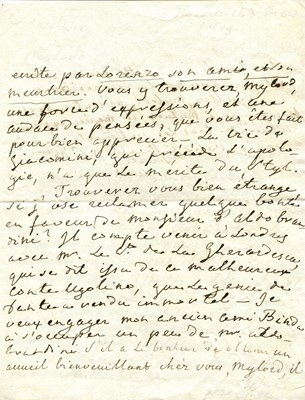 ecrite par Lorenzo son ami, et son
meurtrier. Vous y trouverez, mylord,
une force d'expressions, et une
audace de pensées, que vous êtes fait
pour bien apprecier. La vie de
Giacomini, qui précede l'apolo
gie, n'a que le merite du Styl.
Trouverez vous bien étrange
si j'ose reclamer quelque bonté
en faveur de Monsieur Aldobran
dini? Il compte venir à Londres
avec Mr. Le de La Gherardesca,
qui se dit issu de ce malheureux
conte Ugolino, que le genie de
Dante a rendu immortal — Je
veux engager mon ancien ami
à s'occuper un peu de Mr. Aldo-
brandini. S'il a le bonheur d'obtenir un
accueil bienveuillant chez vous, Mylord, il